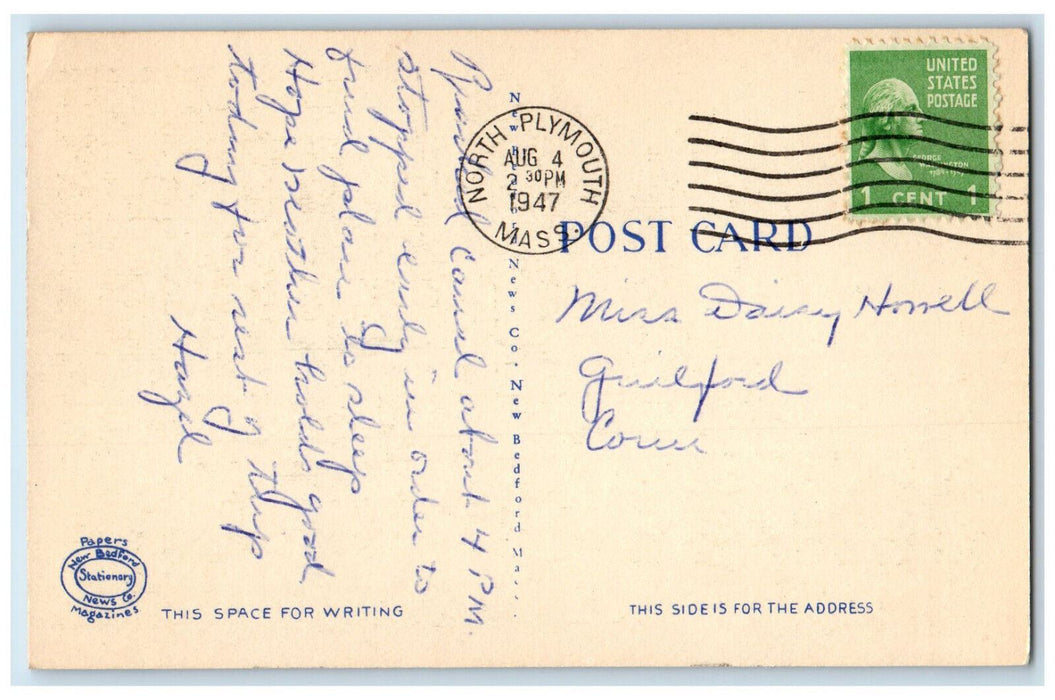 Reached Canal about 4 PM.
stopped early in order to
find place to sleep
Hope weather holds good
today for rest of trip
Hazel
NORTH PLYMOUTH
AUG 4
2 30 PM
1947
MASS.
UNITED
STATES
POSTAGE
GEORGE
WASHINGTON
1 CENT 1
POST CARD
Miss Daisy Howell
Guilford
Conn
New Bedford News Co. New Bedford Mass.
Papers
New Bedford
Stationery
News Co.
Magazines
THIS SPACE FOR WRITING
THIS SIDE IS FOR THE ADDRESS